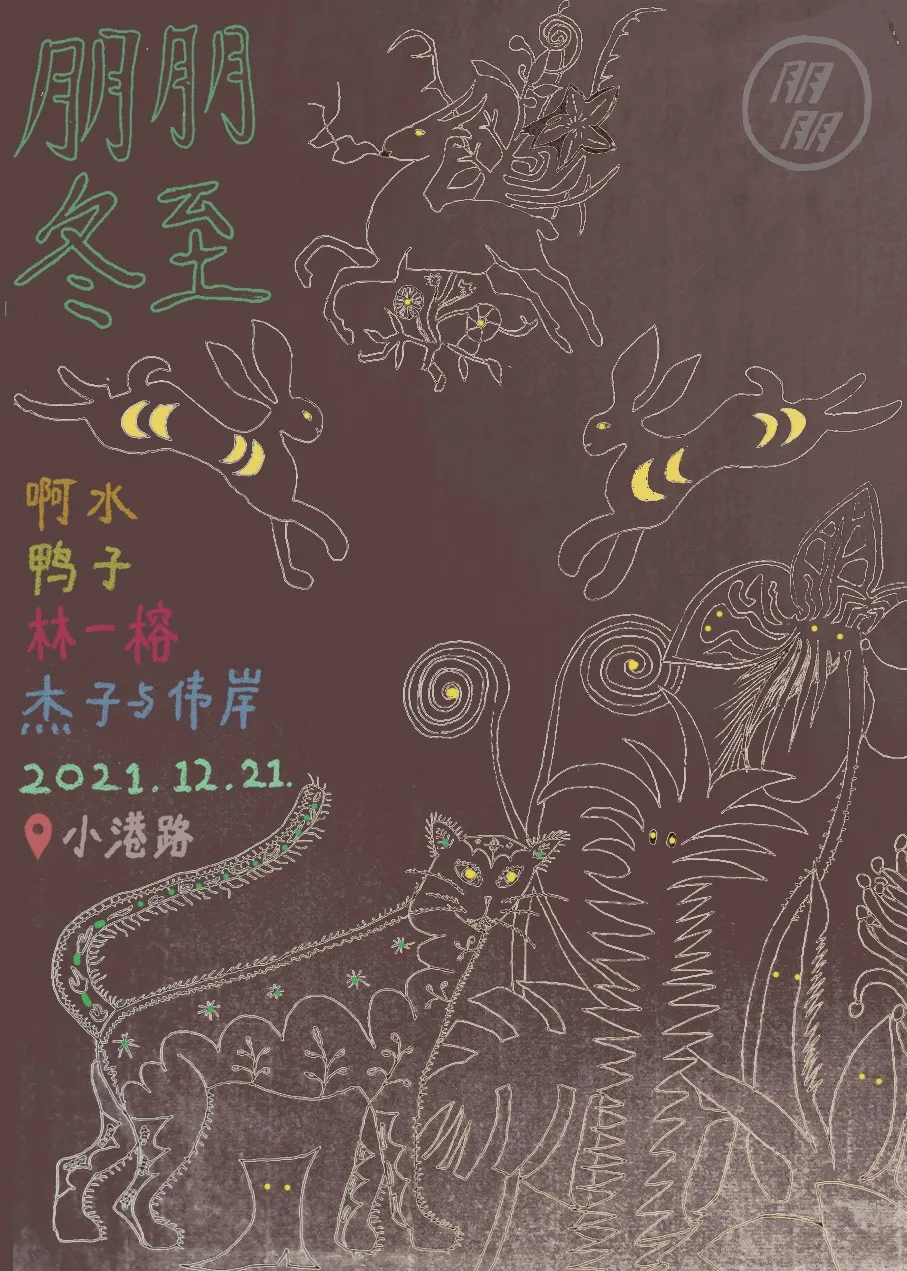 朋朋
冬至
朋
朋
啊水
鸭子
林一榕
杰子与伟岸
2021.12.21.
小港路